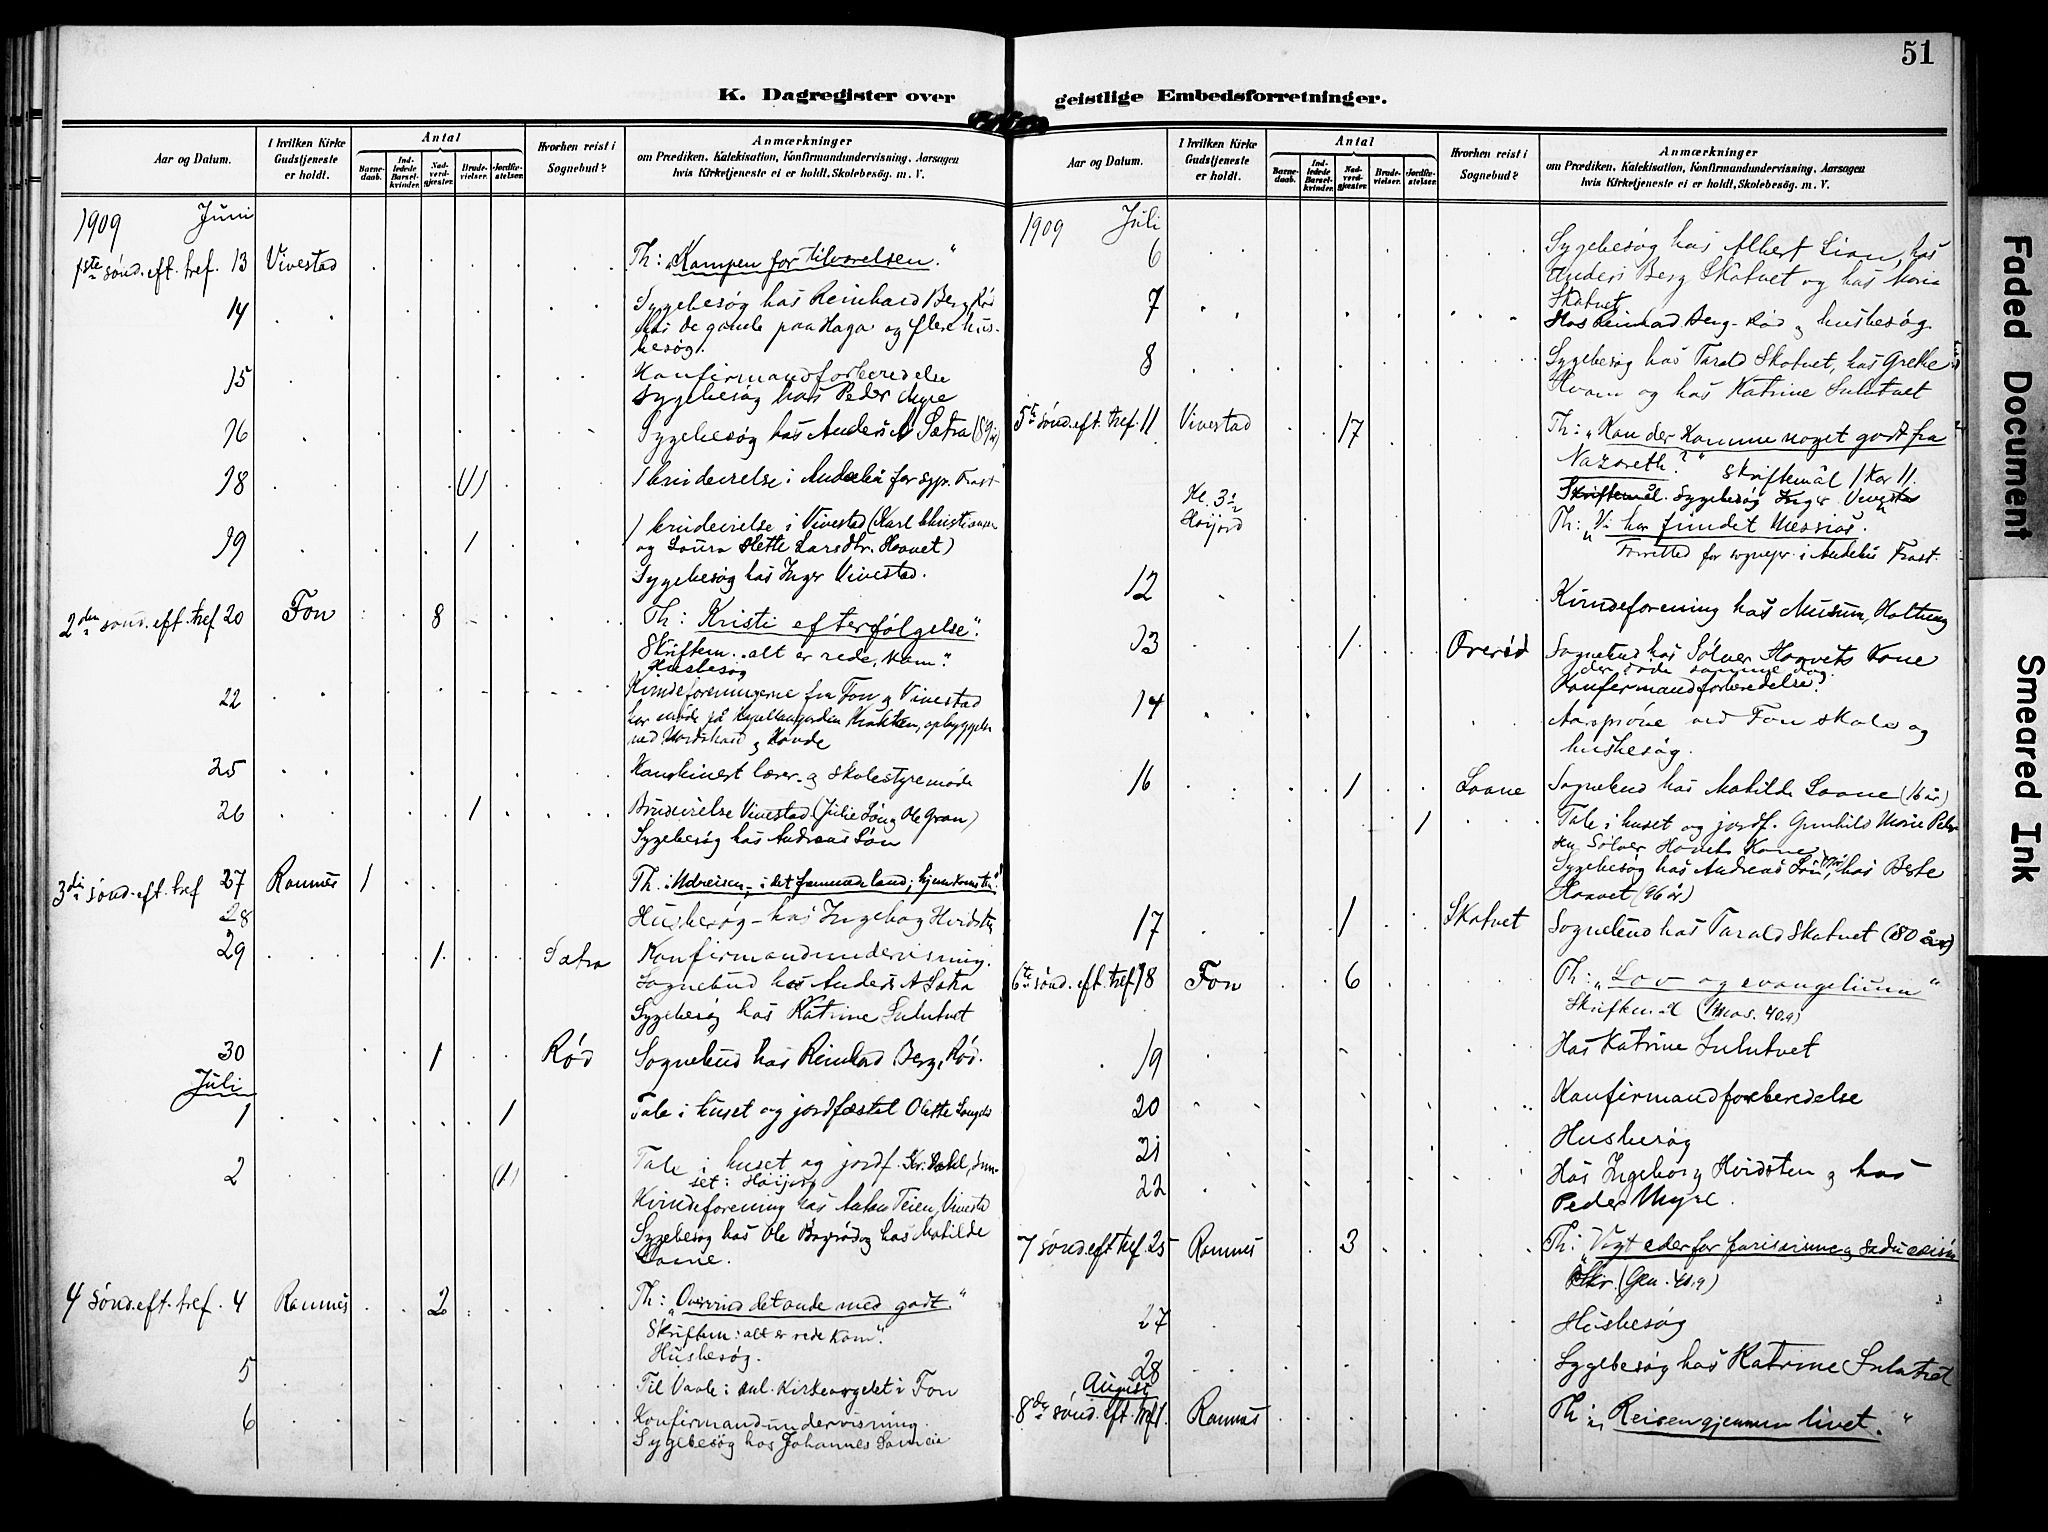 51
K. Dagregister over geistlige Embedsforretninger.
Aar og Datum.
I hvilken Kirke Gudstjeneste er holdt.
Antal
Barnedaab.
Indledede Barselkvinder.
Nadverdgjester.
Brudevielser.
Jordfæstelser.
Hvorhen reist i Sognebud?
Anmærkninger
om Prædiken, Katekisation, Konfirmandundervisning, Aarsagen
hvis Kirketjeneste ei er holdt, Skolebesøg. m. V.
1909 Juni
1ste sønd. eft. tref. 13 Vivestad Th: „Kampen for tilværelsen."
14 Sygebesøg has Reinhard Berg Rød
has de gamle paa Haga og flere hus-
besøg.
15 Konfirmandforberedelse
Sygebesøg has Peder Myre
16 Sygebesøg has Anders A Sætra
18 (1) 1 brudevielse i Andebu for sgpr. Frost
19 1 1 brudevielse i Vivestad (Karl Christiansen
og Laura Mette Larsdtr. Haavet)
Sygebesøg has Inger Vivestad.
2den sønd. eft. tref 20 Fon 8 Th: Kristi efterfølgelse".
Skriftem. „alt er rede, kom".
Husbesøg
22 Kvindeforeningerne fra Fon og Vivestad
har møde på Kapellangården Krakken, opbyggelse
ved Nordstrand og Hovde
25 Kombinert lærer- og skolestyremøde
26 1 Brudevielse Vivestad (Julie Løn og Ole Gran)
Sygebesøg has Andreas Løn
3die sønd. eft. tref 27 Ramnes 1 Th. „Udreisen, i det fremmede land, hjemkomsten"
28 Husbesøg - has Ingeborg Hvidsten
29 1 Sætra Konfirmandundervisning.
Sognebud has Anders A Sætra
Sygebesøg has Katrine Sulutvet
30 1 Rød Sognebud has Reinhard Berg, Rød.
Juli
1 1 Tale i huset og jordfæstet Olette
2 (1) Tale i huset og jordf. Kr. Dahl,
set: Høijord
Kvindeforening has Anton Teien, Vivestad
Sygebesøg has Ole og has Matilde
Loane.
4 sønd. eft. tref. 4 Ramnes 2 Th: „Overvind det onde med godt."
Skriftem: alt er rede kom".
Husbesøg.
5 Til Vaale i anl. Kirkeorgelet i Fon
6 Konfirmandundervisning.
Sygebesøg hos Johannes
Aar og Datum.
I hvilken Kirke Gudstjeneste er holdt.
Antal
Barnedaab.
Indledede Barselkvinder.
Nadverdgjester.
Brudevielser.
Jordfæstelser.
Hvorhen reist i Sognebud?
Anmærkninger
om Prædiken, Katekisation, Konfirmandundervisning, Aarsagen
hvis Kirketjeneste ei er holdt, Skolebesøg. m. V.
1909 Juli
6 Sygebesøg has Albert Lian, has
Anders Berg Skatvet og has Maria
Skatvet
7 Has Reinhad Berg - Rød og husbesøg.
8 Sygebesøg has Tarald Skatvet, has Grethe
Kvam og has Katrine Sulutvet
5te sønd. eft. tref. 11 Vivestad 17 Th: „Kan der komme noget godt fra
Nazareth?" Skriftemål 1 Kor 11.
Skriftemål. Sygebesøg Inger Vivestad
Kl. 3½ Høijord Th: „Vi har fundet Messias.
Forretted for sognepr. i Andebu Frost.
12 Kvindeforening has Musum, Holtung
13 1 Overød Sognebud has Sølver Haavets Kone
der døde samme dag.
Konfirmandforberedelse.
14 Aarsprøve ved Fon skole og
husbesøg.
16 1 Loane Sognebud has Matilde Loane (16 år)
1 Tale i huset og jordf. Gunhild Marie
Sølver Havets Kone
Sygebesøg has Andreas has Berte
Haavet (96 år)
17 1 Skatvet Sognebud has Tarald Skatvet (80 år)
6te sønd. eft. tref 18 Fon 6 Th: „Lov og evangelium"
Skriftemål (1 Mos. 40.9)
19 Has Katrine Sulutvet
20 Konfirmandforberedelse
21 Husbesøg
22 Has Ingeborg Hvidsten og has
Peder Myre.
7 sønd. eft tref. 25 Ramnes 3 Th: „Vogt eder for farisæisme og
Skr. (Gen. 40.9)
27 Husbesøg
28 Sygebesøg has Katrine Sulutvet
August
8de sønd. eft. tref 1. Ramnes Th: „Reisen gjennem livet."
Faded Document
Smeared Ink